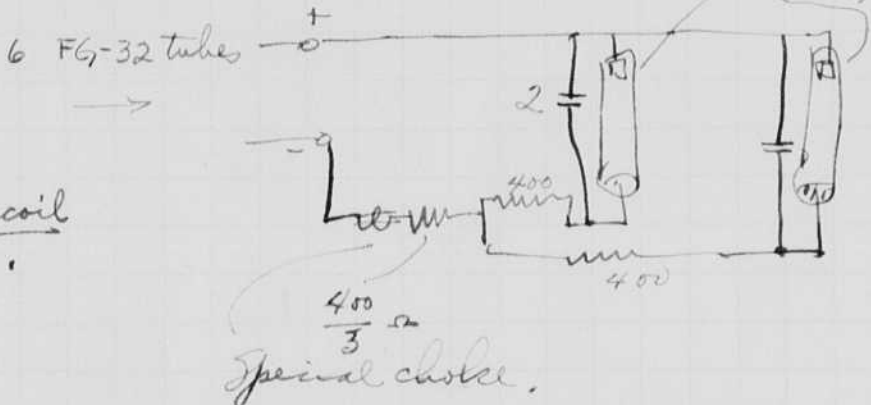 +
6 FG-32 tubes
2
-
400
coil
.
400
400
3 Ω
Special choke.